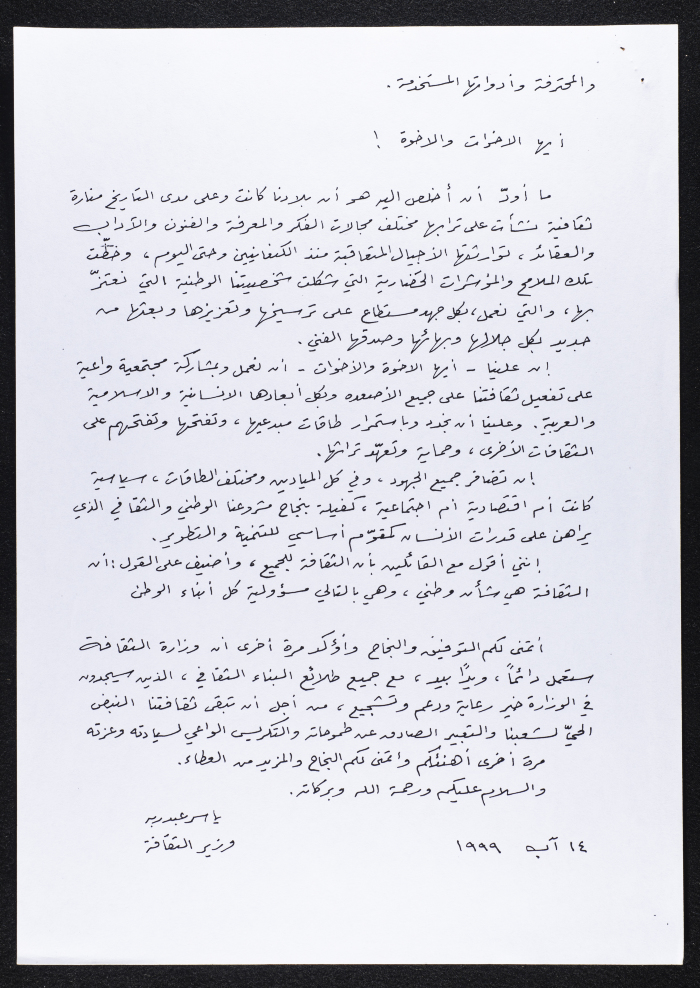 والمحترفة وأدواتها المستخدمة .
أيها الاخوات والاخوة !
ما أودّ أن أخلص اليه هو أن بلادنا كانت وعلى مدى التاريخ منارة
ثقافية نشأت على ترابها مختلف مجالات الفكر والمعرفة والفنون والآداب
والعقائد ، توارثتها الأجيال المتعاقبة منذ الكنعانيين وحتى اليوم ، وخطّت
تلك الملامح والمؤشرات الحضارية التي شكلت شخصيتنا الوطنية التي نعتزّ
بها ، والتي نعمل ، بكل جهد مستطاع على ترسيخها وتعزيزها وبعثها من
جديد بكل جلالها وبهائها وصدقها الفني .
إن علينا - أيها الاخوة والأخوات - أن نعمل وبمشاركة مجتمعية واعية
على تفعيل ثقافتنا على جميع الأصعده وبكل أبعادها الانسانية والاسلامية
والعربية . وعلينا أن نجدد وباستمرار طاقات مبدعيها ، وتفتحها وتفتحهم على
الثقافات الأخرى ، وحماية وتعهّد تراثها .
إن تضافر جميع الجهود ، وفي كل الميادين ومختلف الطاقات ، سياسية
كانت أم اقتصادية أم اجتماعية ، كفيلة بنجاح مشروعنا الوطني والثقافي الذي
يراهن على قدرات الأنسان كمقوّم أساسي للتنمية والتطوير .
إنني أقول مع القائلين بأن الثقافة للجميع ، وأضيف على القول : أن
الثقافة هي شأن وطني ، وهي بالتالي مسؤولية كل أبناء الوطن
أتمنى لكم التوفيق والنجاح وأؤكد مرة أخرى ان وزارة الثقافة
ستعمل دائماً ، ويدًا بيد ، مع جميع طلائع البناء الثقافي ، الذين سيجدون
في الوزارة خير رعاية ودعم وتشجيع ، من أجل أن تبقى ثقافتنا النبض
الحيّ لشعبنا والتعبير الصادق عن طموحاته والتكريس الواعي لسيادته وعزته
مرة أخرى أهنئكم واتمنى لكم النجاح والمزيد من العطاء .
والسلام عليكم ورحمة الله وبركاته .
ياسر عبدربه
وزير الثقافة
١٤ آب ١٩٩٩